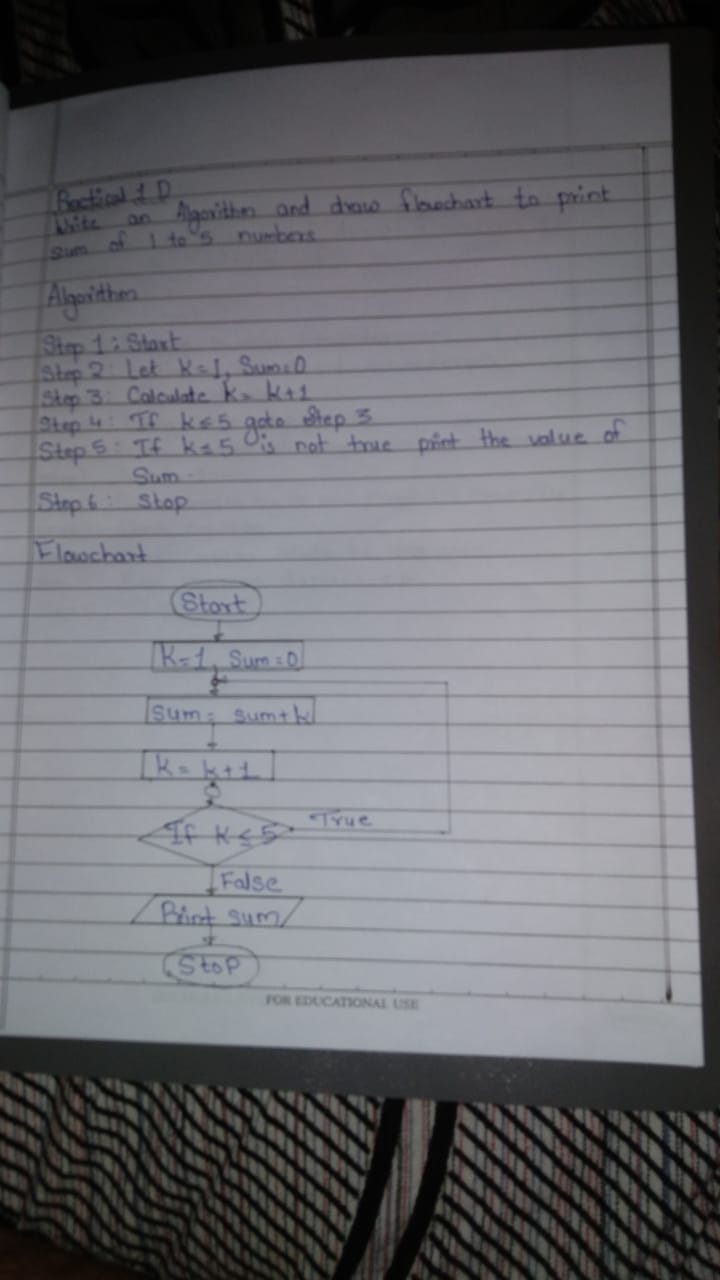 Practical 1 D
Write an Algorithm and draw flowchart to print
sum of 1 to 5 numbers
Algorithm
Step 1: Start
Step 2: Let k=1, Sum=0
Step 3: Calculate k= k+1
Step 4: If k≤5 goto Step 3
Step 5: If k≤5 is not true print the value of
Sum.
Step 6: Stop
Flowchart
Start
K=1, Sum=0
Sum= sum+k
K= k+1
If K≤5
True
False
Print sum
Stop
FOR EDUCATIONAL USE